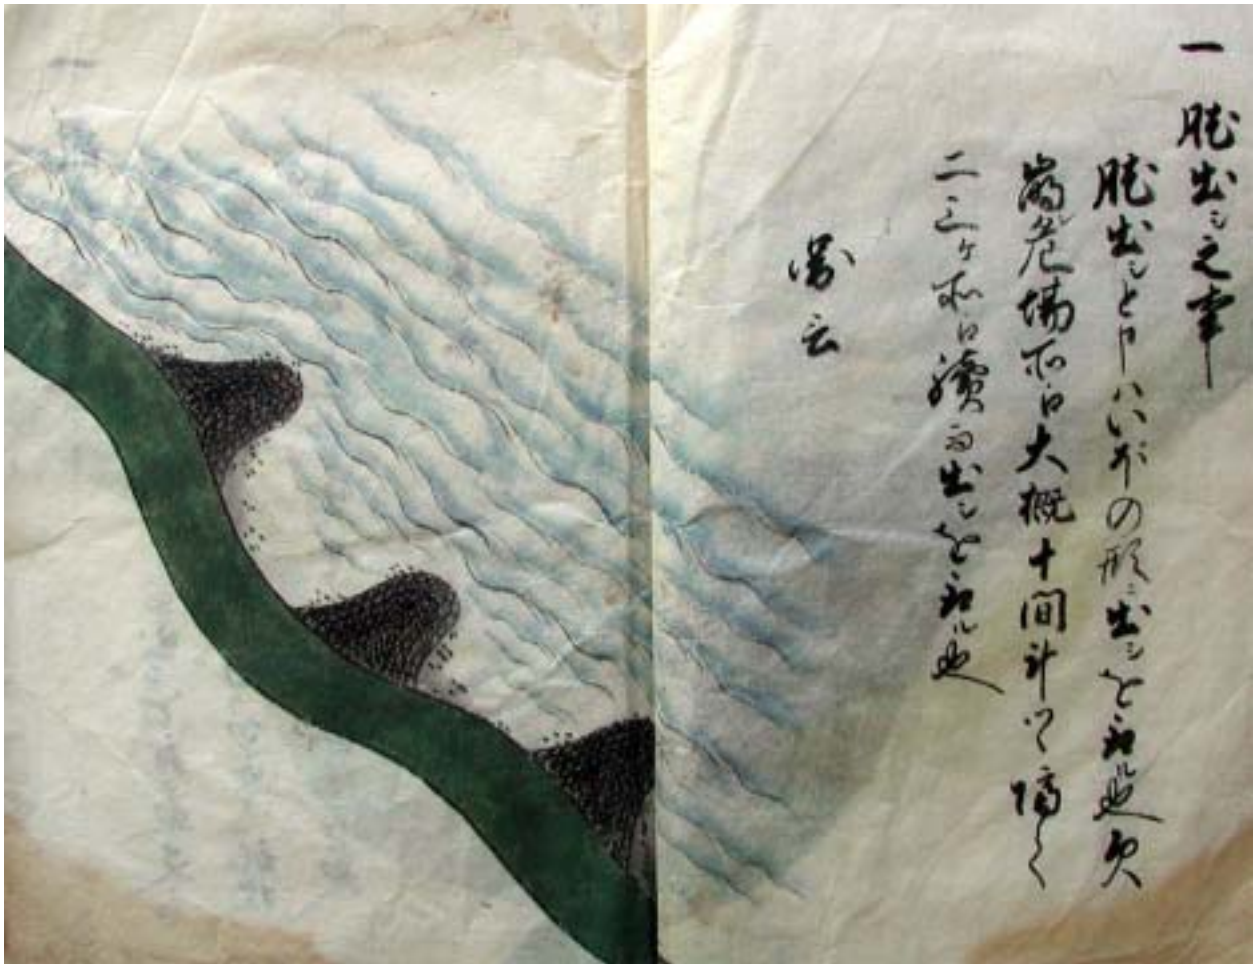 一 肬出シ之事
肬出シと申ハいボの形ニ出シを ル也欠
崩レ危場所江大概十間計ツヽ隔
二三ヶ所江續而出シを ル也
圖云